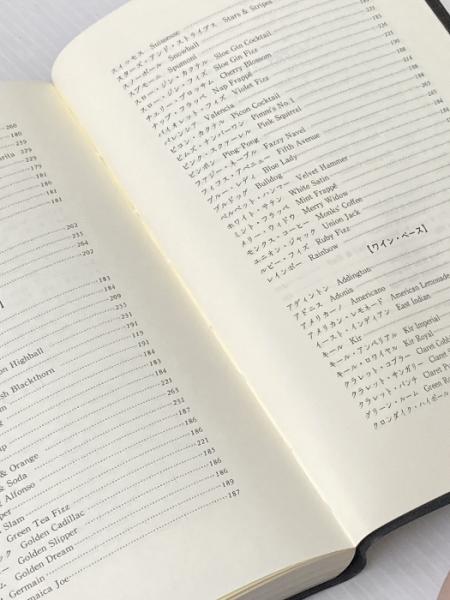 260
180
rita 229
179
181
181
202
233
264
292
】
183
184
209
255
231
191
on Highball 119
191
sh Blackthorn 184
183
184
263
221
up 251
187
& Orange 186
& Soda 186
Alfonso 221
per 185
Slam 185
Green Tea Fizz 186
ック Golden Cadillac 186
Golden Slipper 189
ム Golden Dream 187
Germain
amaica Joe
スイッセス Suissesse
スターズ・アンド・ストライプス Stars & Stripes
スノーボール Snowball
スプモーニ Spumoni
スロー・ジン・カクテル Sloe Gin Cocktail
スロー・ジン・フィズ Sloe Gin Fizz
チェリー・ブロッサム Cherry Blossom
ナップ・フラッペ Nap Frappé
バイオレット・フィズ Violet Fizz
バレンシア Valencia
ピコン・カクテル Picon Cocktail
ピムズ・ナンバーワン Pimm's No.1
ピンク・スクァーレル Pink Squirrel
ピンポン Ping-Pong
ファジー・ネーブル Fazzy Navel
フィフス・アベニュー Fifth Avenue
ブルー・レディ Blue Lady
ブルドッグ Bulldog
ベルベット・ハンマー Velvet Hammer
ホワイト・サテン White Satin
ミント・フラッペ Mint Frappé
メリー・ウィドウ Merry Widow
モンクス・コーヒー Monks' Coffee
ユニオン・ジャック Union Jack
ルビー・フィズ Ruby Fizz
レインボー Rainbow
【ワイン・ベース】
アディントン Addington
アドニス Adonis
アメリカーノ Americano
アメリカン・レモネード American Lemonade
イースト・インディアン East Indian
キール Kir
キール・アンペリアル Kir Imperial
キール・ロワイヤル Kir Royal
クラレット・コブラー Claret Cobb
クラレット・サンガリー Claret
クラレット・パンチ Claret P
グリーン・ルーム Green Ro
クロンダイク・ハイボール